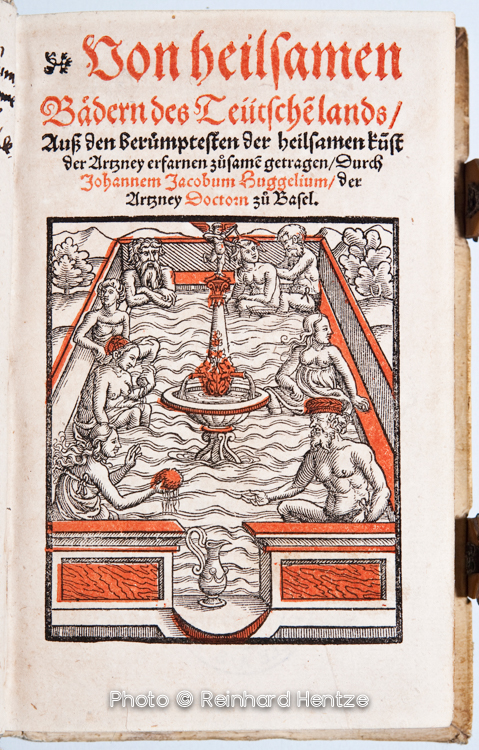 Von heilſamen
Bådern des Teütſchē lands/
Auß den berůmpteſten der heilſamen kūſt
der Artzney erfarnen zůſamē getragen/Durch
Johannem Jacobum Huggelium/der
Artzney Doctorn zů Baſel.
Photo © Reinhard Hentze